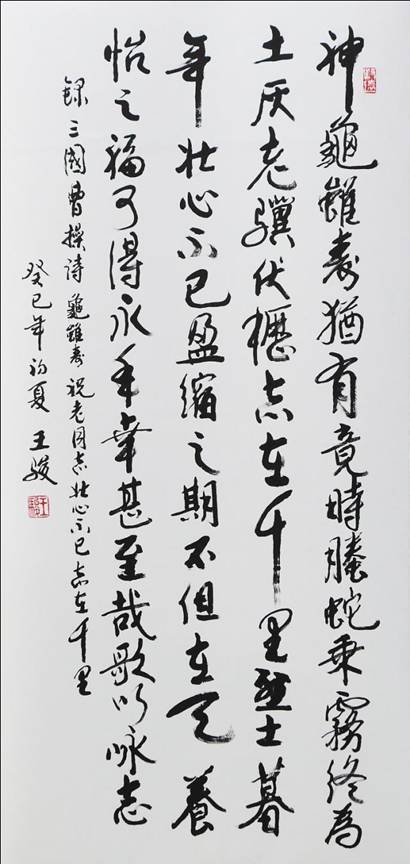 神龜雖壽猶有竟時螣蛇乘霧終為
土灰老驥伏櫪志在千里烈士暮
年壯心不已盈縮之期不但在天養
怡之福可得永年幸甚至哉歌以詠志
錄三國曹操詩龜雖壽祝老同志壯心不已志在千里
癸巳年初夏王駿